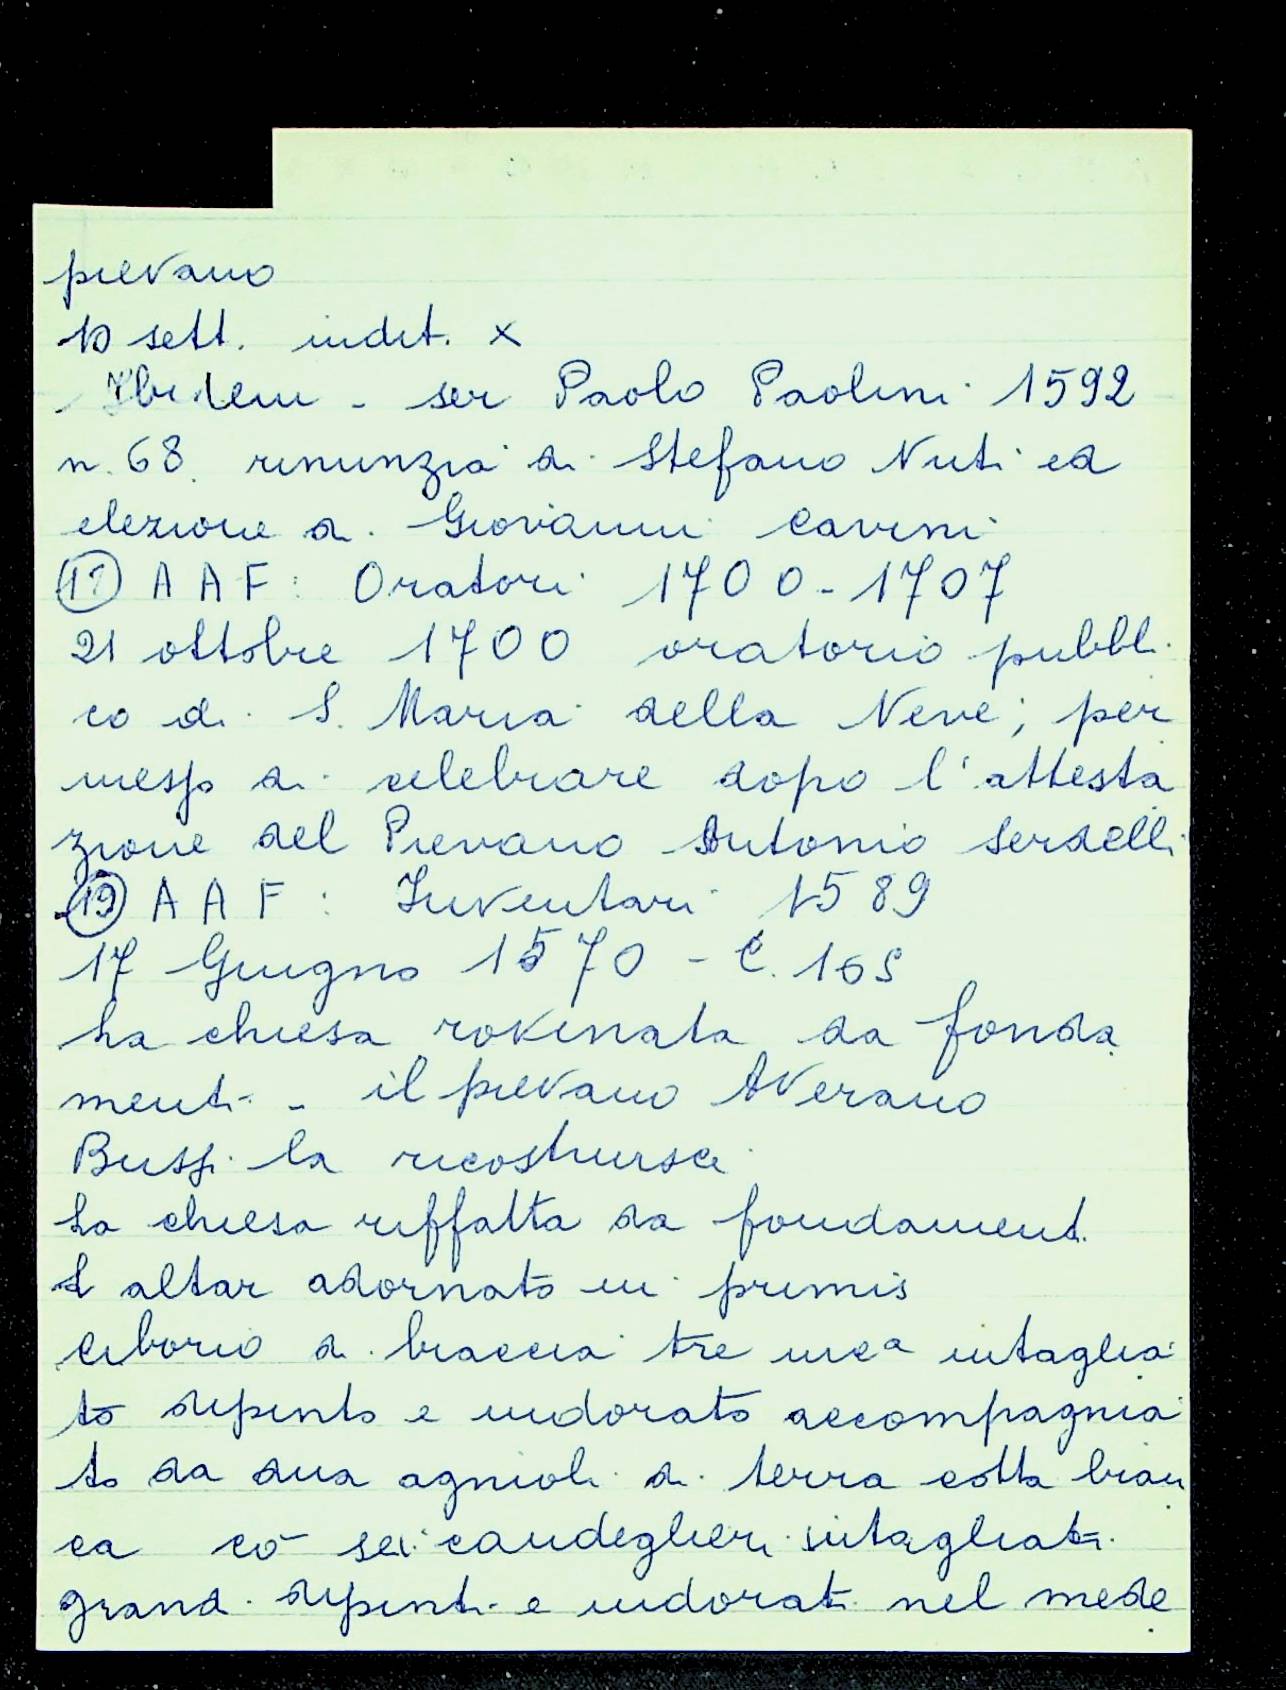 pievano
10 sett. indit. X
Ibidem - ser Paolo Paolini 1592
n. 68. rinunzia di Stefano Nuti ed
elezione di Giovanni Cavini
AAF: Oratori 1700-1707
21 ottobre 1700 oratorio pubbli
co di S. Maria della Neve; per
messo di celebrare dopo l'attesta
zione del Pievano Antonio Serdelli
(19) AAF: Inventari 1589
17 Giugno 1570 - C.
La chiesa rovinata da fonda
menti - il pievano Averano
Bussi la ricostruisce
La chiesa riffatta da fondamenti
L altar adornato in primis
Ciborio di braccia tre intaglia
to dipinto e indorato accompagnia
to da dua agnioli di terra cotta bian
ca cō sei candeglieri intagliati
grandi dipinti e indorati nel mede